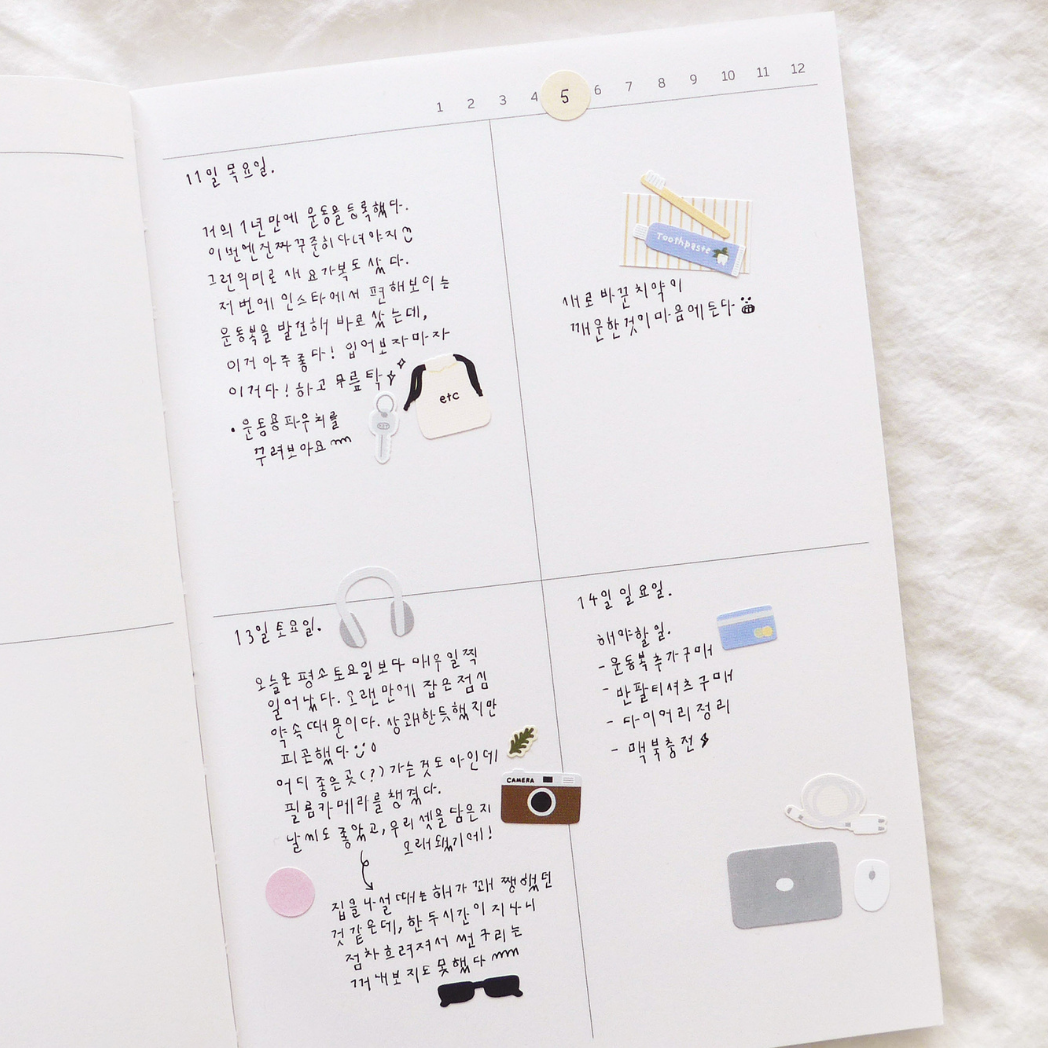 1 2 3 4 5 6 7 8 9 10 11 12
11일 목요일.
거의 1년만에 운동을 등록했다.
이번엔 진짜 꾸준히 다녀야지
그런의미로 새 요가복도 샀다.
저번에 인스타에서 편해보이는
운동복을 발견해 바로 샀는데,
이거 아주 좋다! 입어보자마자
이거다! 하고 무릎 탁
etc
• 운동용파우치를
꾸려보아요
Toothpaste
새로 바꾼 치약이
개운한것이 마음에든다
13일 토요일.
오늘은 평소 토요일보다 매우 일찍
일어났다. 오랜만에 잡은 점심
약속 때문이다. 상쾌한듯했지만
피곤했다
어디 좋은곳(?) 가는것도 아인데
필름카메라를 챙겼다.
날씨도 좋았고, 우리 셋을 담은지
오래됐기에!
CAMERA
집을나설 때는 해가 꽤 쨍했던
것 같은데, 한 두시간이 지나니
점차 흐려져서 썬구리는
꺼내보지도 못했다
14일 일요일.
해야할일.
- 운동복 추가구매
- 반팔티셔츠 구매
- 다이어리 정리
- 맥북충전